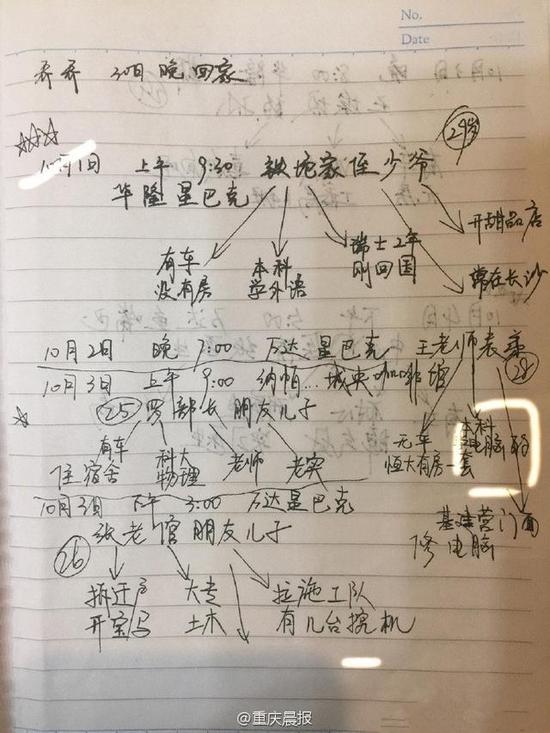 No.
Date
乔乔 30日晚回家
10月1日 上午 9:30 铁坨家侄少爷 29岁
华隆星巴克
开甜品店
有车
没有房
本科
学外语
瑞士2年
刚回国
常在长沙
10月2日 晚 7:00 万达星巴克 王老师表弟 28
10月3日 上午 9:00 纳帕...城央咖啡馆
25 罗部长朋友儿子
有车
住宿舍
科大
物理
老师
老实
无车
恒大有房一套
本科
电脑
基建营门面
修电脑
10月3日 下午 3:00 万达星巴克
张老倌朋友儿子
26
拆迁户
开宝马
大专
土木
拉施工队
有几台挖机
@重庆晨报